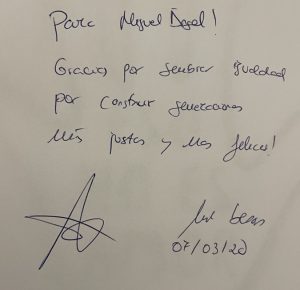 Para Miguel Ángel!
Gracias por sembrar igualdad
por construir generaciones
más justas y mas felices!
07/03/20